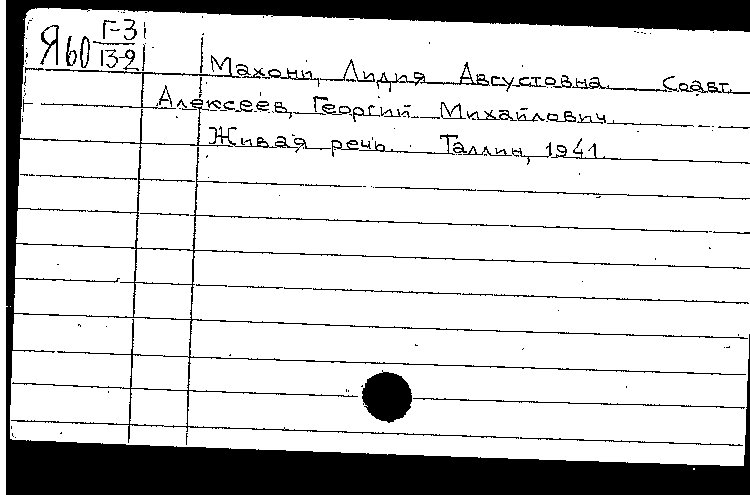 Я60 Г-3
13-2
Махони, Лидия Августовна. Соавт.
Алексеев, Георгий Михайлович
Живая речь. Таллин, 1941.